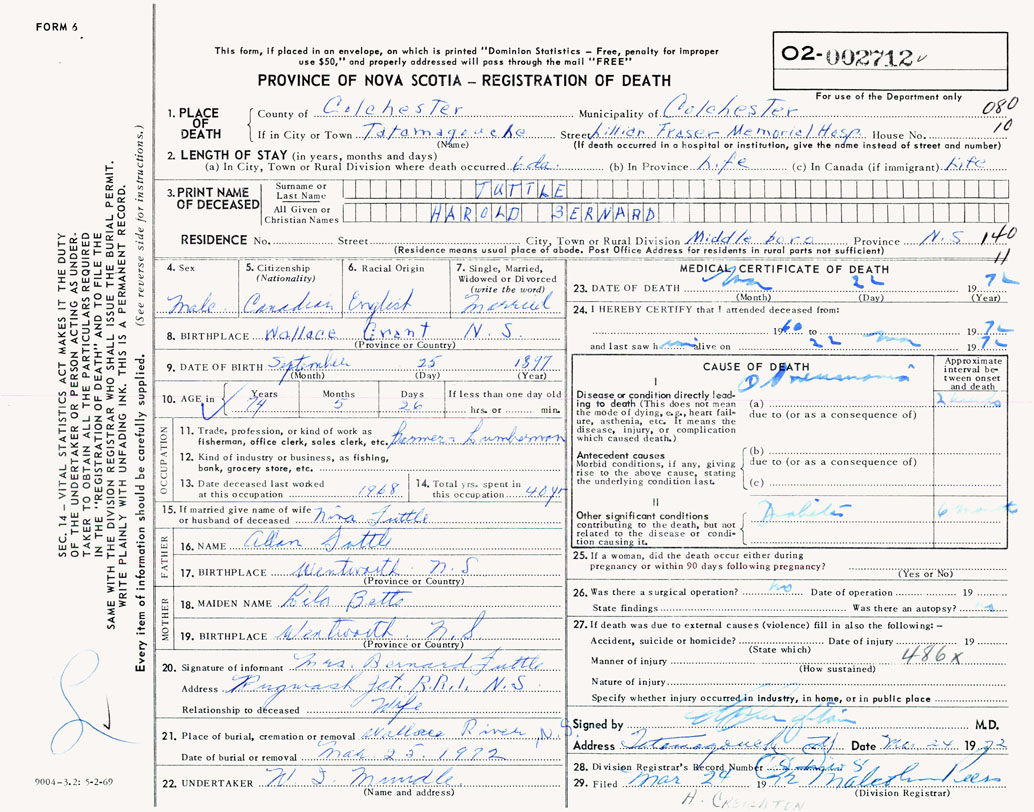 FORM 6
This form, if placed in an envelope, on which is printed "Dominion Statistics – Free, penalty for improper
use $50," and properly addressed will pass through the mail "FREE"
PROVINCE OF NOVA SCOTIA – REGISTRATION OF DEATH
02-002712
For use of the Department only
080
10
1. PLACE OF DEATH
County of Colchester Municipality of Colchester
If in City or Town Tatamagouche Street Lillian Fraser Memorial Hosp. House No.
(Name) (If death occurred in a hospital or institution, give the name instead of street and number)
2. LENGTH OF STAY (in years, months and days)
(a) In City, Town or Rural Division where death occurred 6 da. (b) In Province Life (c) In Canada (if immigrant) Life
3. PRINT NAME OF DECEASED
Surname or Last Name TUTTLE
All Given or Christian Names HAROLD BERNARD
RESIDENCE No. Street City, Town or Rural Division Middleboro Province N.S
140
11
(Residence means usual place of abode. Post Office Address for residents in rural parts not sufficient)
4. Sex Male
5. Citizenship (Nationality) Canadian
6. Racial Origin English
7. Single, Married, Widowed or Divorced (write the word) Married
8. BIRTHPLACE Wallace Grant N.S.
(Province or Country)
9. DATE OF BIRTH September 25 1897
(Month) (Day) (Year)
10. AGE in Years 74 Months 5 Days 26 If less than one day old
hrs. or min.
OCCUPATION
11. Trade, profession, or kind of work as
fisherman, office clerk, sales clerk, etc. Farmer - Lumberman
12. Kind of industry or business, as fishing,
bank, grocery store, etc.
13. Date deceased last worked
at this occupation 1968
14. Total yrs. spent in
this occupation 40 yr
15. If married give name of wife
or husband of deceased Nina Tuttle
FATHER
16. NAME Allan Tuttle
17. BIRTHPLACE Wentworth N.S
(Province or Country)
MOTHER
18. MAIDEN NAME Betts
19. BIRTHPLACE Wentworth N.S
(Province or Country)
20. Signature of informant Mrs. Bernard Tuttle
Address Pugwash Jct. R.R.1, N.S
Relationship to deceased Wife
21. Place of burial, cremation or removal Wallace River, N.S
Date of burial or removal Mar 25, 1972
22. UNDERTAKER Mundle
(Name and address)
MEDICAL CERTIFICATE OF DEATH
23. DATE OF DEATH Mar 22 1972
(Month) (Day) (Year)
24. I HEREBY CERTIFY that I attended deceased from:
1960 to 1972
and last saw him alive on 22 Mar 1972
CAUSE OF DEATH
Approximate interval between onset and death
I
Disease or condition directly lead-
ing to death (This does not mean
the mode of dying, e.g., heart fail-
ure, asthenia, etc. It means the
disease, injury, or complication
which caused death.)
(a) Pneumonia 2 weeks
due to (or as a consequence of)
Antecedent causes
Morbid conditions, if any, giving
rise to the above cause, stating
the underlying condition last.
(b)
due to (or as a consequence of)
(c)
II
Other significant conditions
contributing to the death, but not
related to the disease or condi-
tion causing it.
Diabetes 6 months
25. If a woman, did the death occur either during
pregnancy or within 90 days following pregnancy?
(Yes or No)
26. Was there a surgical operation? no Date of operation 19
State findings Was there an autopsy? no
27. If death was due to external causes (violence) fill in also the following: –
Accident, suicide or homicide? Date of injury 19
(State which)
Manner of injury 486x
(How sustained)
Nature of injury
Specify whether injury occurred in industry, in home, or in public place
Signed by M.D.
Address Tatamagouche Date Mar 24 1972
28. Division Registrar's Record Number
29. Filed Mar 24 1972 Malcolm Peers
(Division Registrar)
H. CREIGHTON
SEC. 14 – VITAL STATISTICS ACT MAKES IT THE DUTY
OF THE UNDERTAKER OR PERSON ACTING AS UNDER-
TAKER TO OBTAIN ALL THE PARTICULARS REQUIRED
IN THE "REGISTRATION OF DEATH" AND FILE THE
SAME WITH THE DIVISION REGISTRAR WHO SHALL ISSUE THE BURIAL PERMIT.
WRITE PLAINLY WITH UNFADING INK. THIS IS A PERMANENT RECORD.
Every item of information should be carefully supplied. (See reverse side for instructions.)
9004-3.2: 5-2-69